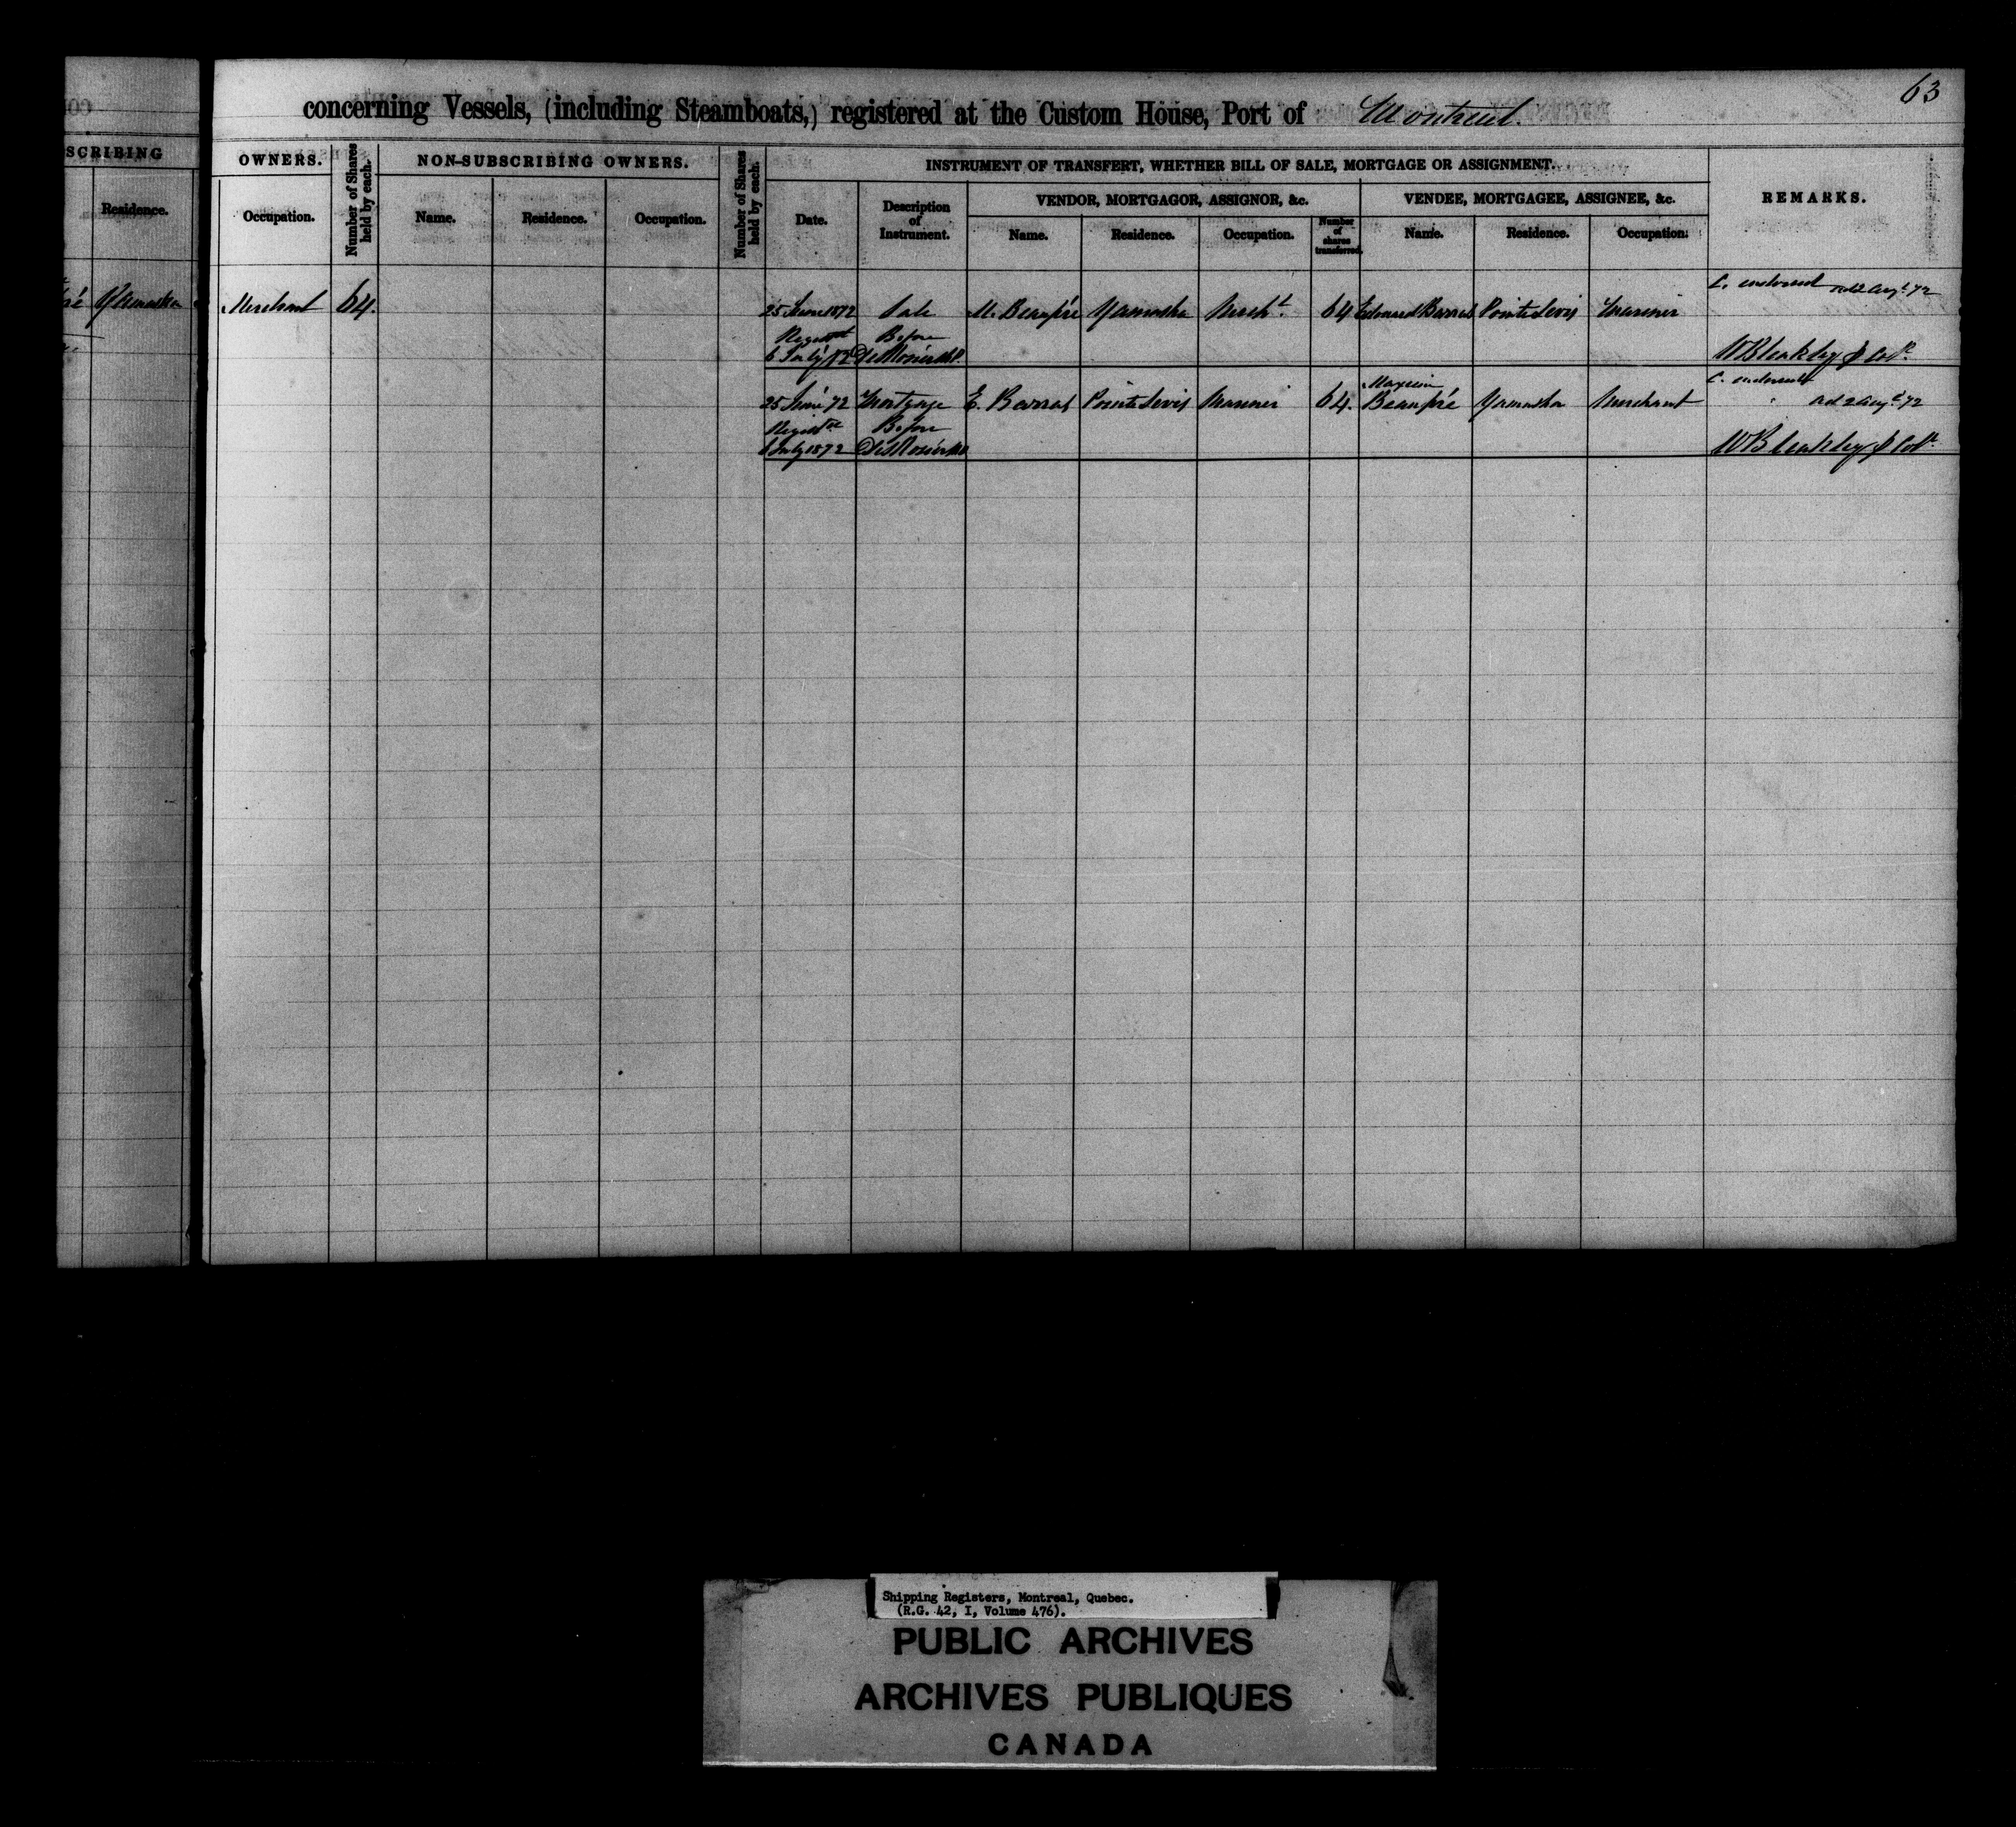 63
concerning Vessels, (including Steamboats,) registered at the Custom House, Port of Montreal.
SCRIBING
OWNERS.
Number of Shares held by each.
NON-SUBSCRIBING OWNERS.
Number of Shares held by each.
INSTRUMENT OF TRANSFERT, WHETHER BILL OF SALE, MORTGAGE OR ASSIGNMENT.
REMARKS.
VENDOR, MORTGAGOR, ASSIGNOR, &c.
VENDEE, MORTGAGEE, ASSIGNEE, &c.
Residence.
Occupation.
Name.
Residence.
Occupation.
Date.
Description
of
Instrument.
Name.
Residence.
Occupation.
Number
of
shares
transferred.
Name.
Residence.
Occupation.
C. endorsed 2 Augt. 72
Yamaska Merchant 64. 25 June 1872 Sale M. Beaupré Yamaska Mercht. 64 Edouard Barras Pointe Levis Mariner
Before
6 July 72
W Bleakley
C. endorsed
Maxim
25 June 72 Mortgage E. Barras Pointe Levis Mariner 64. Beaupré Yamaska Merchant 2 Augt. 72
Before
6 July 1872
W Bleakley
Shipping Registers, Montreal, Quebec.
(R.G. 42, I, Volume 476).
PUBLIC ARCHIVES
ARCHIVES PUBLIQUES
CANADA